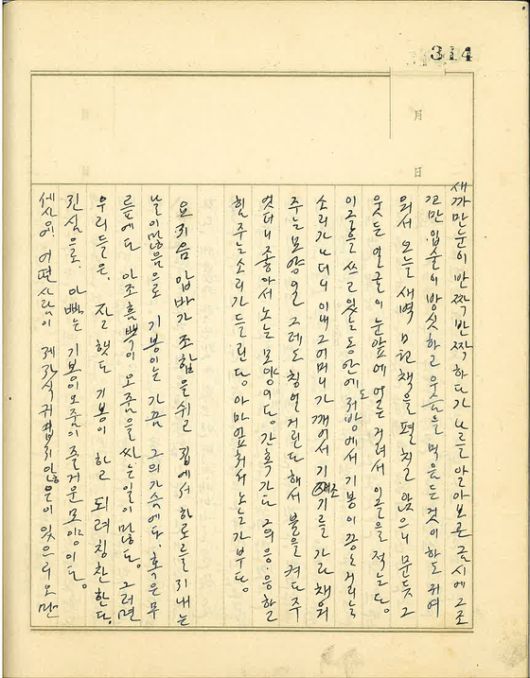 314
月
日
새까만 눈이 반짝반짝 하다가 나를 알아보곤 금시에 그 조
고만 입술이 방싯하고 웃음을 먹음든 것이 하도 귀여
워서 오늘 새벽 日記책을 펼치고 앉으니 문듯 그
웃든 얼골이 눈앞에 어른거려서 이 글을 적는다.
이 글을 쓰고 있는 동안에도 저방에서 기봉이 끙끙거리는
소리가 나더니 이내 그 어머니가 깨여서 기저기를 가라 채워
주는 모양인데 그래도 칭얼거린다. 해서 불을 켜 다 주
엇더니 좋아서 노는 모양이다. 간혹가다 그의 응. 응 하고
힘주는 소리가 들린다. 아마 엎처서 노는가부다.
요지음 압바가 조합을 쉬고 집에서 하로를 지내는
날이 많음으로 기봉이는 가끔 그의 가슴에다. 혹은 무
릎에다 아조 흠뻑이 오줌을 싸는 일이 많다. 그러면
우리들은, 잘 했다 기봉이 하고 되려 칭찬한다.
진심으로. 아빠는 기봉이 오줌이 즐거운 모양이다.
세상의 어떤 사람이 제 자식 귀엽지 않은 이 있으리오만